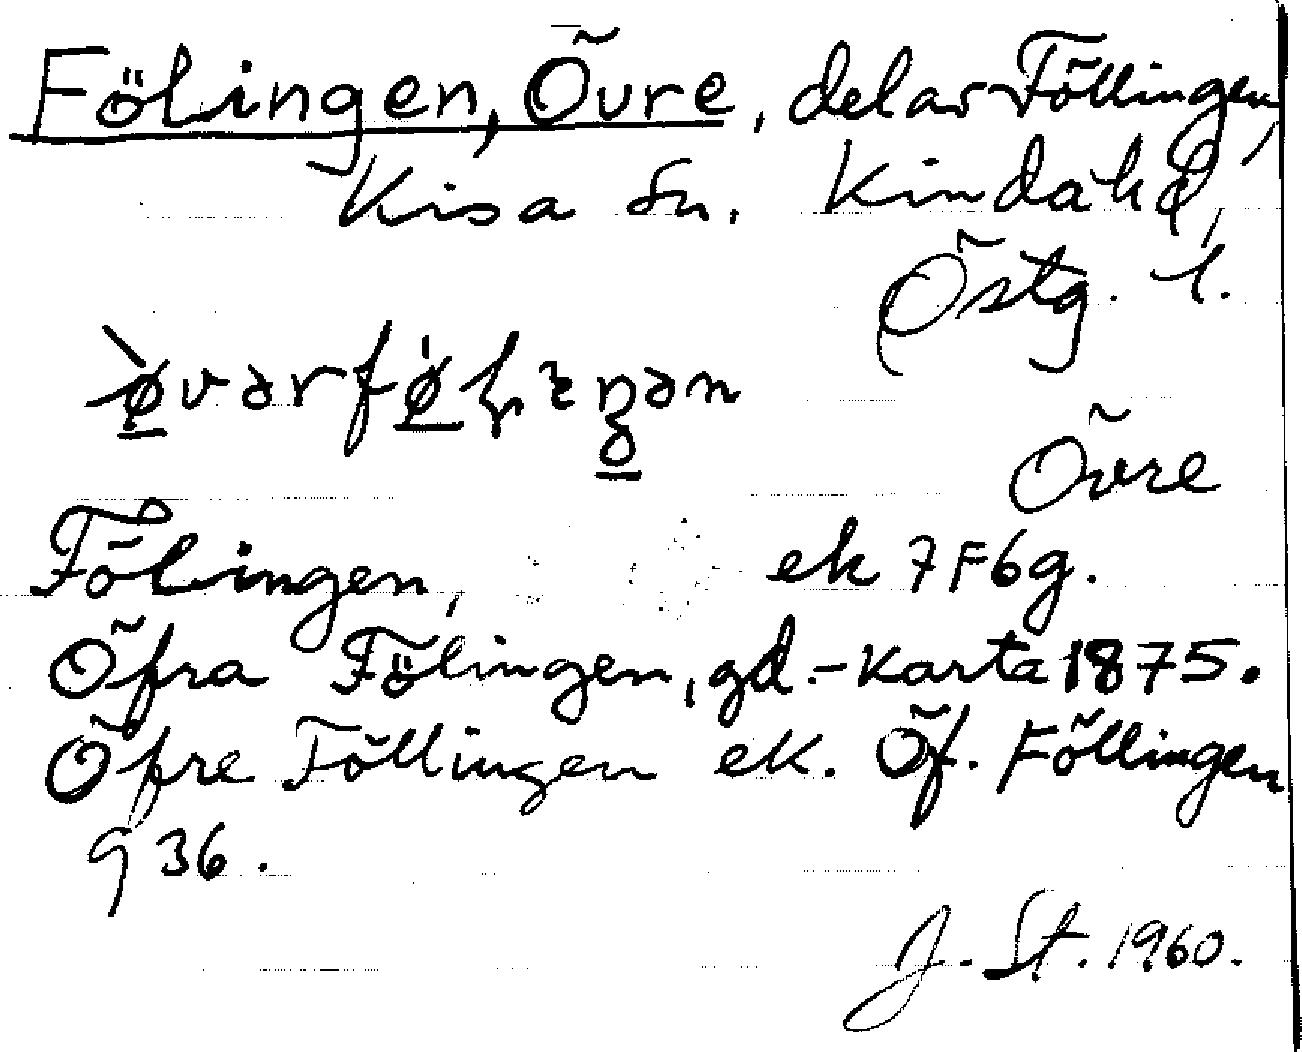 Fölingen, Övre, del av Föllingen,
Kisa sn. Kinda hd,
Östg. l.
Övre
Fölingen, ek 7F6g.
Öfra Fölingen, gd.-karta 1875.
Öfre Föllingen ek. Öf. Föllingen
g 36.
J. St. 1960.